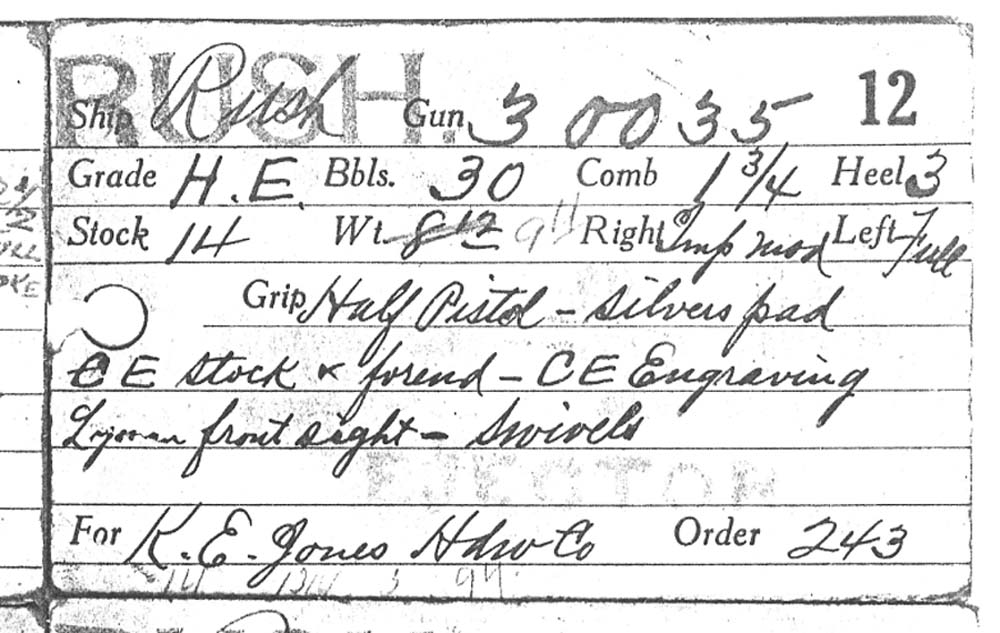 RUSH
Ship Rush Gun 300035 12
Grade H.E. Bbls. 30 Comb 1 3/4 Heel 3
Stock 14 Wt 8 12 9 Right Imp mod Left Full
Grip Half Pistol - Silvers pad
CE stock & forend - CE Engraving
Lyman front sight - swivels
EJECTOR
For K.E. Jones Hdw Co Order 243